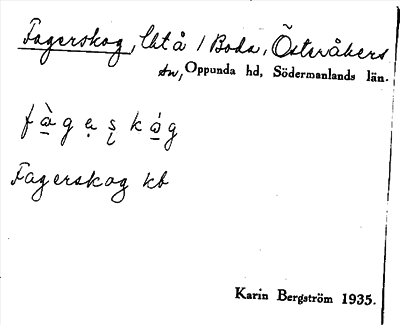 Fagerskog, lht å / Boda, Österåkers
sn, Oppunda hd, Södermanlands län.
fà̱gẹʂká̱g
Fagerskog kb
Karin Bergström 1935.